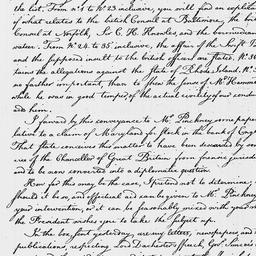 the list. From No. 4 to No. 23 inclusive, you will find an expl
of what relates to the british Consul at Baltimore, the b
Consul at Norfolk, Sir C. H. Knowles, and the bermudian
vateer. From No. 24 to 35. inclusive, the affair of the Swift
and the supposed insult to the british officer are stated. No. 3
found the allegations against the State of Rhode Island. No.
no farther important, than to shew the form of Mr. Ham
while he was in good temper, of the actual civility of our
and him.
I saved by this conveyance to Mr. Pinckney, some paper
lative to a claim of Maryland for stock in the bank of Eng
That state conceives this matter to have been decided by
ries of the Chancellor of Great Britain from
to be now converted into a diplomatic question.
How far this may be the case, I pretend not to determine;
should it be so, and effectual aid can be given to Mr. Pinckney
your intervention, or it can be feasonably mixed with your
the President wishes you to take the subject up.
In the box sent yesterday, are my letters, newspapers, and
publications, respecting Lord Dorchester's speech, Govr. Simcoe's